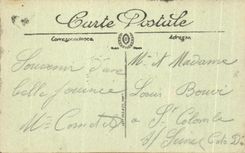 Carte Postale
Correspondance
Adresse
Souvenir d'une
belle journée
Mme Cornet
Mr et Madame
Louis Bouvi
a Ste Colombe
s/ Seine Cote D'